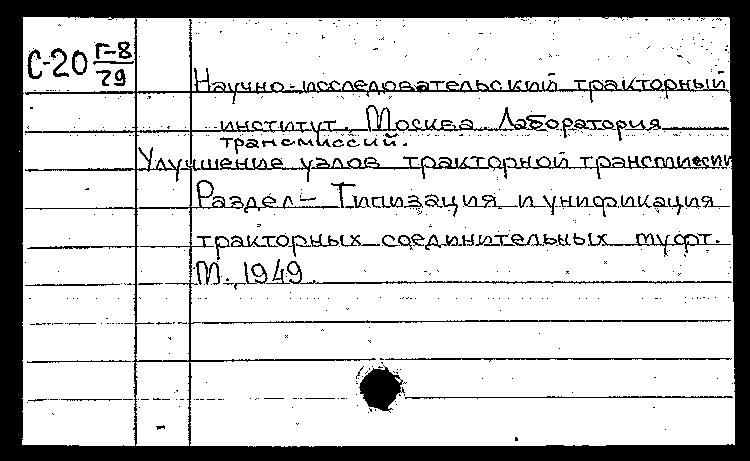 С-20 Г-8
29
Научно-исследовательский тракторный
институт. Москва. Лаборатория
трансмиссий.
Улучшение узлов тракторной трансмиссии
Раздел - Типизация и унификация
тракторных соединительных муфт.
М., 1949.